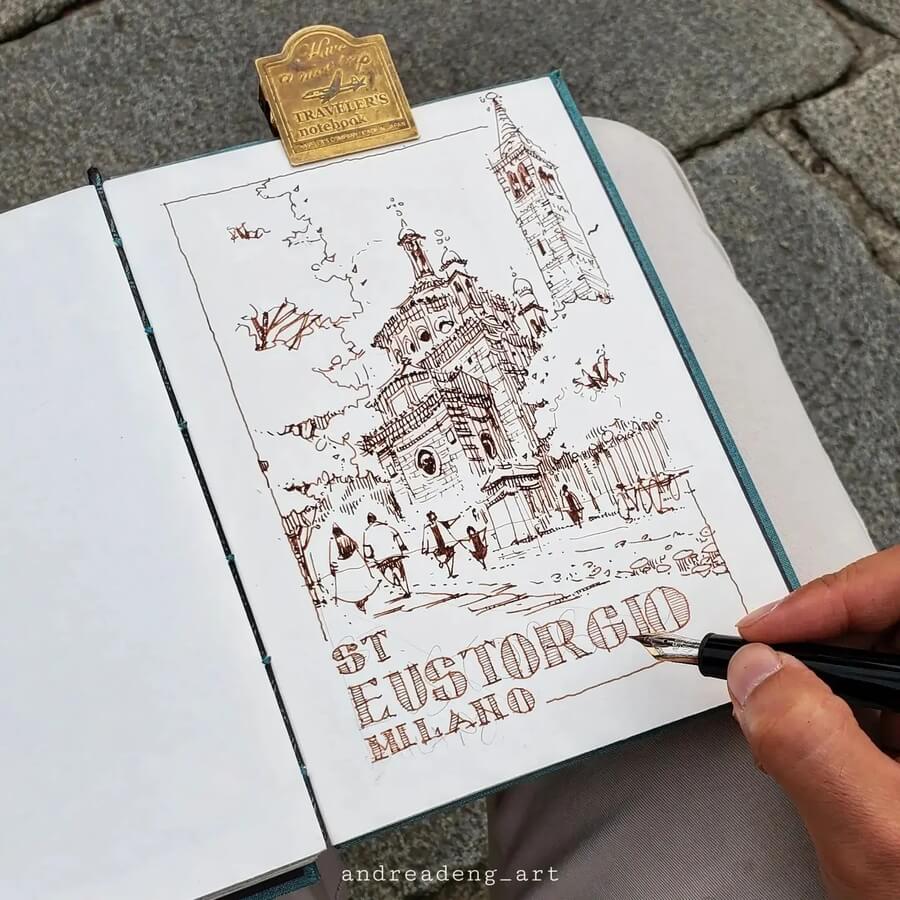 Have
a nice trip
TRAVELER'S
notebook
ST
EUSTORGIO
MILANO
andreadeng_art